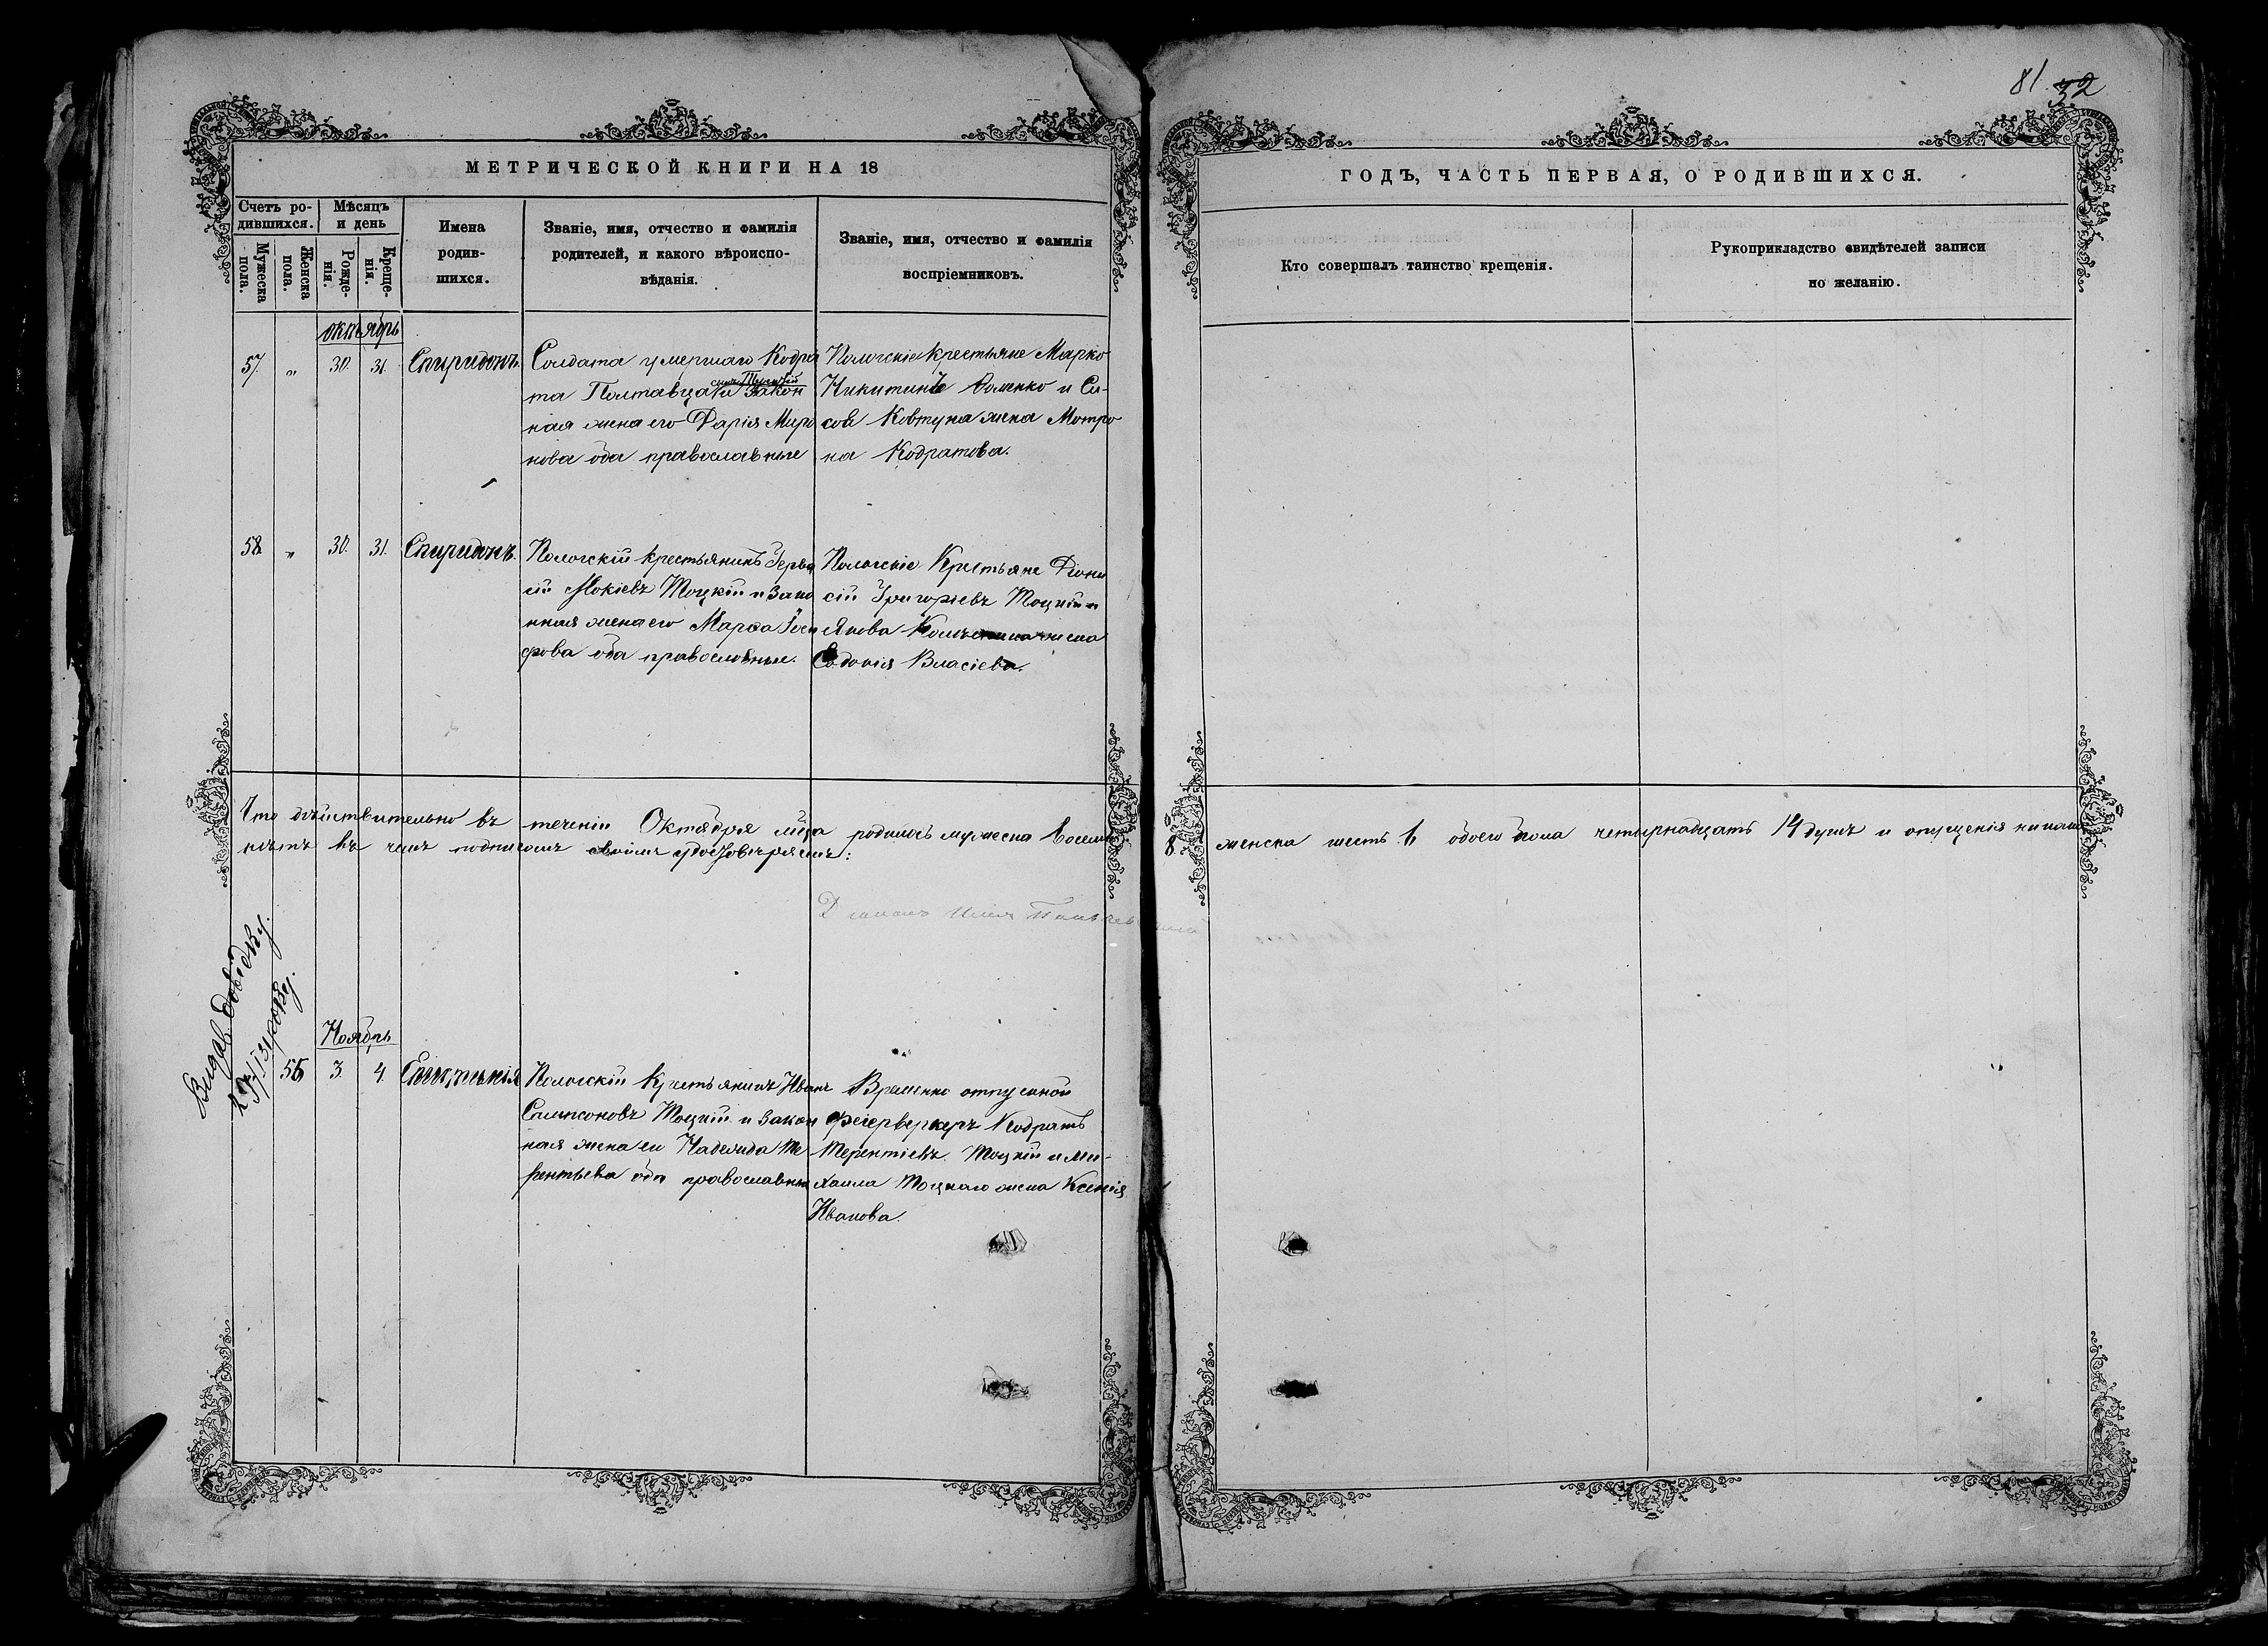 81 32
МЕТРИЧЕСКОЙ КНИГИ НА 18
ГОДЪ, ЧАСТЬ ПЕРВАЯ, О РОДИВШИХСЯ.
Счетъ ро-
дившихся.
Мужеска
пола.
Женска
пола.
Мѣсяцъ
и день
Рожде-
нія.
Креще-
нія.
Имена
родив-
шихся.
Званіе, имя, отчество и фамилія
родителей, и какого вѣроиспо-
вѣданія.
Званіе, имя, отчество и фамилія
воспріемниковъ.
Кто совершалъ таинство крещенія.
Рукоприкладство свидѣтелей записи
по желанію.
октябрь
57. „ 30. 31. Спиридонъ.
Солдата умершаго Кодра
та Полтавца и Закон
ная жена его Дарія Миро
нова оба православные
Пологскіе крестьяне Марко
Никитинъ Фоменко и Си-
сов Ковтуна жена Мотро
на Кодратова.
58. „ 30. 31. Спиридонъ.
Пологскій крестьянинъ Герва
сій Мокіевъ Тоцкій и Зако
нная жена его Марфа Іоси
фова оба православные.
Пологскіе Крестьяне Діони
сій Григоріевъ Тоцкій и
Якова жена
Евдокія Власіева.
Что дѣйствительно въ теченіи Октября мѣца родилось мужеска восемь 8. женска шесть 6 обоего пола четырнадцать 14 душъ и опущенія никако
нѣтъ въ чемъ подписомъ своимъ удостовѣряемъ:
Видав довідку
Ноябрь
56 3. 4. Епистимія
Пологскій Крестьянинъ Иванъ
Самсоновъ Тоцкій и Закон
ная жена его Надежда Те
рентьева оба православные
Временно отпускной
фейерверкеръ Кодратъ
Терентіевъ Тоцкій и Ми-
хаила Тоцкаго жена Ксенія
Иванова.